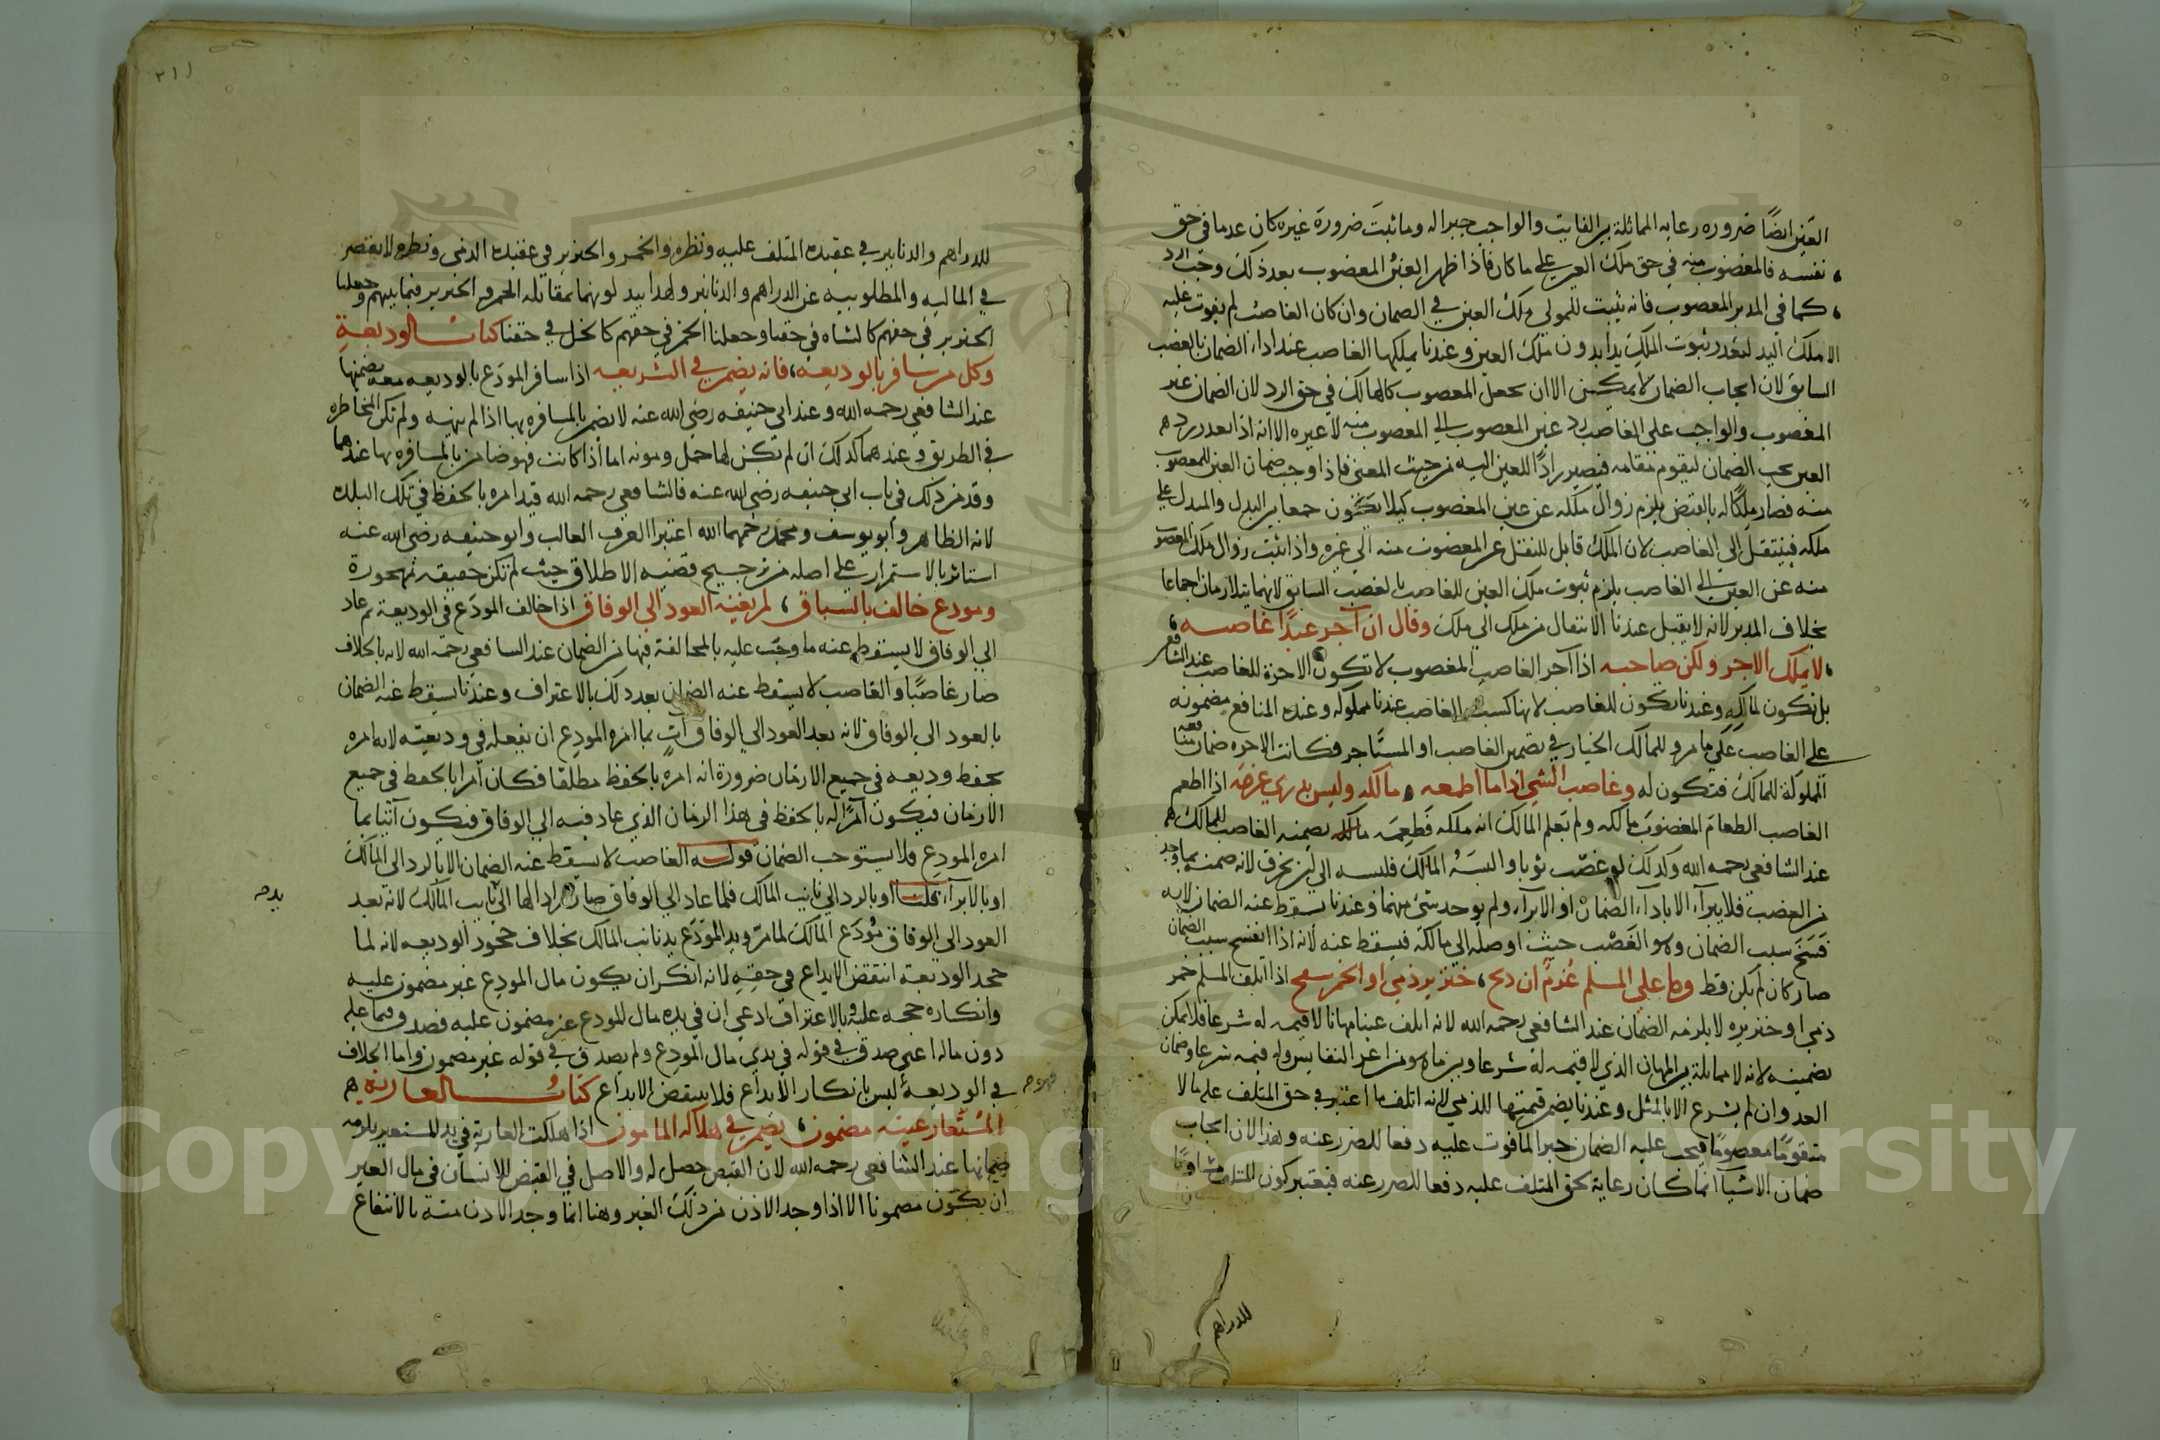 العين ايضا ضرورة رعاية المماثلة بين الفايت والواجب جبرا له وما ثبت ضرورة غيره كان عدما في حق
نفسه فالمغصوب منه في حق ملك العين على ما كان فاذا ظهر العين المغصوب بعد ذلك وجب الرد
كما في المدبر المغصوب فانه يثبت للمولى ملك العين في الضمان وان كان الغاصب لم يفوت عليه
الا ملك اليد لتعذر ثبوت الملك يدا بدون ملك العين وعندنا يملكها الغاصب عند اداء الضمان بالغصب
السابق لان ايجاب الضمان لا يمكن الا ان يجعل المغصوب كالهالك في حق الرد لان الضمان غير
المغصوب والواجب على الغاصب رد عين المغصوب الى المغصوب منه لا غيره الا انه اذا تعذر رد
العين يجب الضمان ليقوم مقامه فيصير رادا للعين اليه من حيث المعنى فاذا وجب ضمان العين للمغصوب
منه فصار ملكا له بالقبض يلزم زوال ملكه عن عين المغصوب كيلا يكون جمعا بين البدل والمبدل على
ملكه فينتقل الى الغاصب لان الملك قابل للنقل عن المغصوب منه الى غيره واذا ثبت زوال ملك المغصوب
منه عن العين الى الغاصب يلزم ثبوت ملك العين للغاصب بالغصب السابق لانهما يتلازمان اجماعا
بخلاف المدبر لانه لا يقبل عندنا الانتقال من ملك الى ملك وقال ان آجر عبدا غاصبه
لا يملك الاجر ولكن صاحبه اذا آجر الغاصب المغصوب لا تكون الاجرة للغاصب عند الشافعي
بل تكون لمالكه وعندنا يكون للغاصب لانها كسب الغاصب عندنا مملوكه وعنده المنافع مضمونه
على الغاصب على ما مر وللمالك الخيار في تضمين الغاصب او المستاجر فكانت الاجره ضمان منافعه
المملوكة للمالك فتكون له وغاصب الشي اذا ما اطعمه مالكه وليس يدري غرضه اذا اطعم
الغاصب الطعام المغصوب مالكه ولم يعلم المالك انه ملكه فطعمه مالكه يضمنه الغاصب للمالك
عند الشافعي رحمه الله وكذلك لو غصب ثوبا والبسه المالك فلبسه الى ان تخرق لانه ضمنه بما وجد
من الغصب فلا يبرأ الا باداء الضمان او الابراء ولم يوجد شئ منهما وعندنا يسقط عنه الضمان لانه
فسخ سبب الضمان وهو الغصب حيث اوصله الى مالكه فيسقط عنه لانه اذا انفسخ سبب الضمان
صار كان لم يكن قط وما على المسلم غرم ان ذبح خنزير ذمي او الخمر سفح اذا اتلف المسلم خمر
ذمي او خنزيره لا يلزمه الضمان عند الشافعي رحمه الله لانه اتلف عينا مهانا لا قيمه له شرعا فلا يمكن
تضمينه لانه لا مماثلة بين المهان الذي لا قيمه له شرعا وبين ما هو من اعز النفايس وله قيمه شرعا وضمان
العدوان لم يشرع الا بالمثل وعندنا يضمن قيمتها للذمي لانه اتلف ما اعتبر في حق المتلف عليه مالا
متقوما معصوما فيجب عليه الضمان جبرا لما فوت عليه دفعا للضرر عنه وهذا لان ايجاب
ضمان الاشيا انما كان رعاية لحق المتلف عليه دفعا للضرر عنه فيعتبر كون المتلف مساويا
للدراهم
٢١١
للدراهم والدنانير في عقيدة المتلف عليه ونظره والخمر والخنزير في عقيدة الذمي ونظره لا يقصر
في المالية والمطلوبيه عن الدراهم والدنانير ولهذا يبدلونهما بمقابلة الخمر والخنزير فيما بينهم وجعلنا
الخنزير في حقهم كالشاه في حقنا وجعلنا الخمر في حقهم كالخل في حقنا كتاب الوديعة
وكل من سافر بالوديعه فانه يضمن في الشريعه اذا سافر المودع بالوديعه معه يضمنها
عند الشافعي رحمه الله وعند ابي حنيفه رضي الله عنه لا يضمن بالمسافره بها اذا لم ينهه ولم تكن المخاطره
في الطريق وعندهما كذلك ان لم تكن لها حمل ومونه اما اذا كانت فهو ضامن بالمسافره بها عندهما
وقد مر ذلك في باب ابي حنيفه رضي الله عنه فالشافعي رحمه الله قيد امره بالحفظ في تلك البلده
لانه الظاهر وأبو يوسف ومحمد رحمهما الله اعتبرا العرف الغالب وابو حنيفه رضي الله عنه
استاثر بالاستمرار على اصله من ترجيح قضيه الاطلاق حيث لم تكن حقيقه مهجورة
ومودع خالف بالسباق لم يغنه العود الى الوفاق اذا خالف المودع في الوديعة ثم عاد
الى الوفاق لا يسقط عنه ما وجب عليه بالمخالفة فيها من الضمان عند الشافعي رحمه الله لانه بالخلاف
صار غاصبا والغاصب لا يسقط عنه الضمان بعد ذلك بالاعتراف وعندنا يسقط عنه الضمان
بالعود الى الوفاق لانه بعد العود الى الوفاق آت بما امره المودع ان يفعله في وديعته لانه امره
بحفظ وديعه في جميع الازمان ضرورة انه امره بالحفظ مطلقا فكان امرا بالحفظ في جميع
الازمان فيكون آمرا له بالحفظ في هذا الزمان الذي عاد فيه الى الوفاق فيكون آتيا بما
امره المودع فلا يستوجب الضمان قوله الغاصب لا يسقط عنه الضمان الا بالرد الى المالك
او بالابراء قلنا او بالرد الى نايب المالك فلما عاد الى الوفاق صار رادا لها الى نايب المالك لانه بعد
العود الى الوفاق مودع المالك لما مر ويد المودع يد نايب المالك بخلاف جحود الوديعه لانه لما
جحد الوديعة انتقض الايداع في حقه لانه انكر ان يكون مال المودع غير مضمون عليه
وانكاره حجه عليه وبالاعتراف ادعى ان في يده مال المودع غير مضمون عليه فصدق فيما عليه
دون ماله اعني صدق في قوله في يدي مال المودع ولم يصدق في قوله غير مضمون واما الخلاف
في الوديعة ليس بانكار الايداع فلا ينتقض الايداع كتاب العارية
المستعار عينه مضمون يضمن في هلاكه المامون اذا هلكت العارية في يد المستعير يلزمه
ضمانها عند الشافعي رحمه الله لان القبض حصل له والاصل في القبض للانسان في مال الغير
ان يكون مضمونا الا اذا وجد الاذن من ذلك الغير وهنا انما وجد الاذن منه بالانتفاع
Copyright © King Saud University